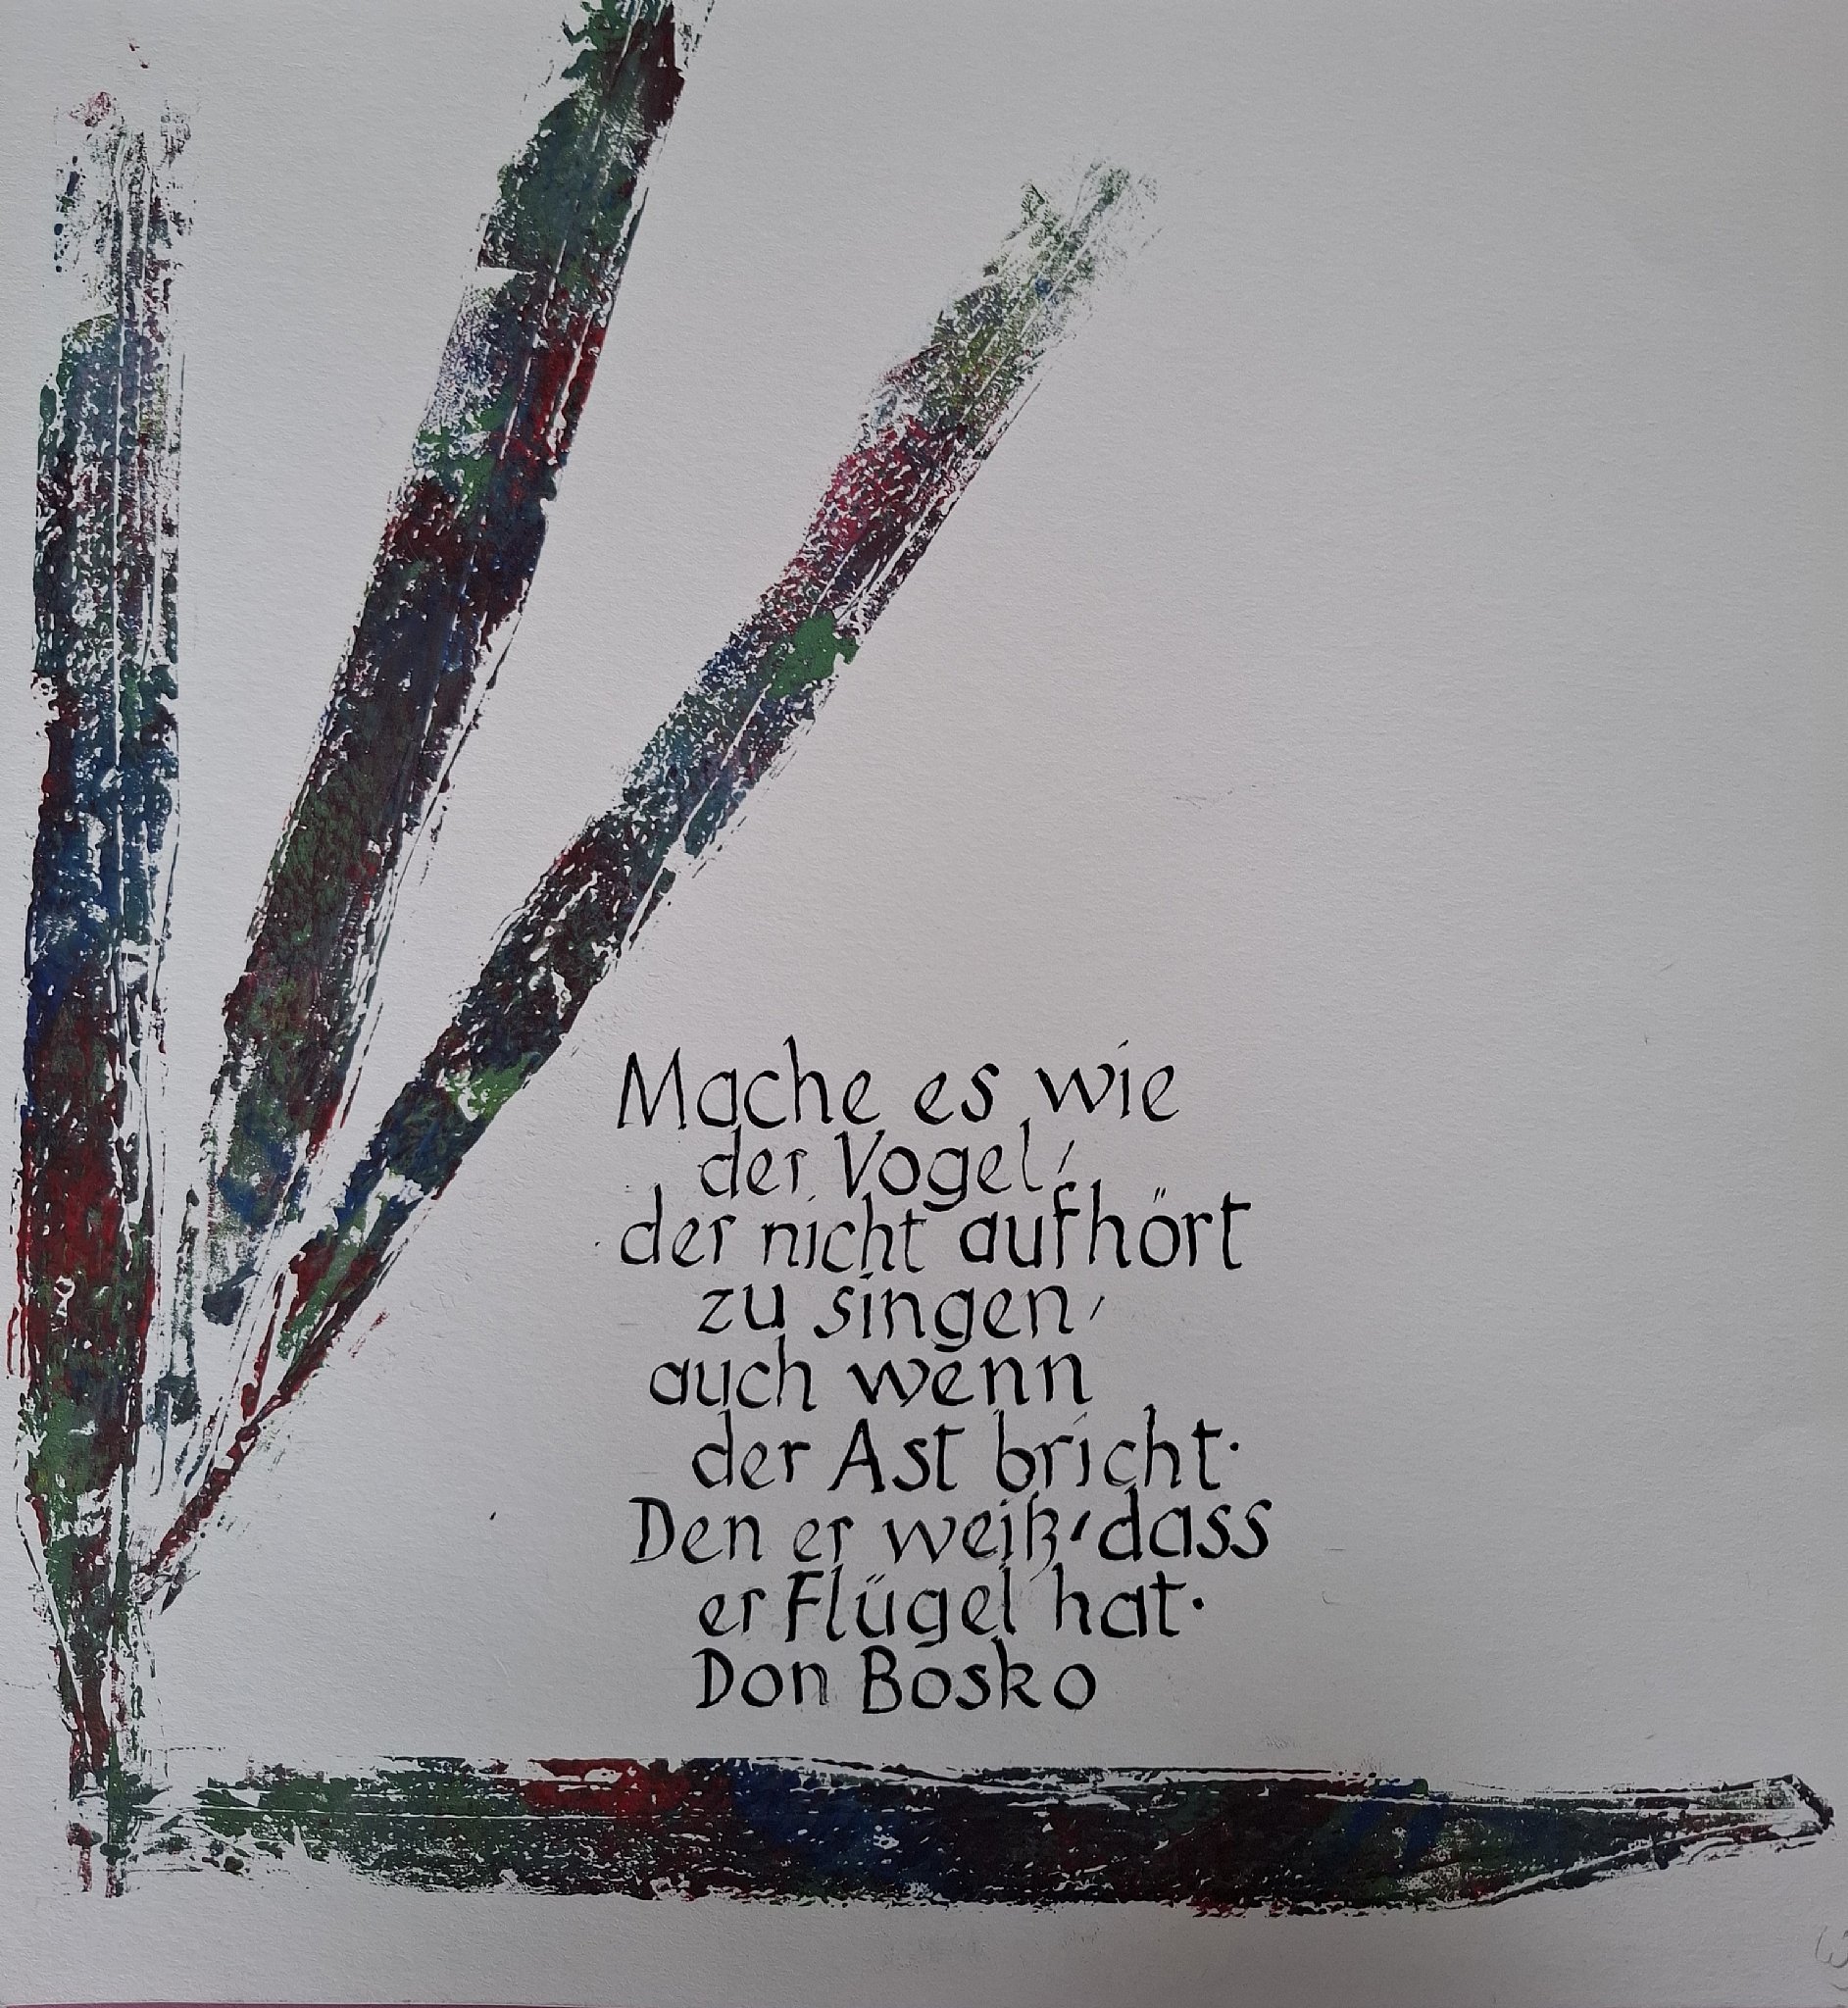 Mache es wie
der Vogel,
der nicht aufhört
zu singen,
auch wenn
der Ast bricht.
Den er weiß, dass
er Flügel hat.
Don Bosko